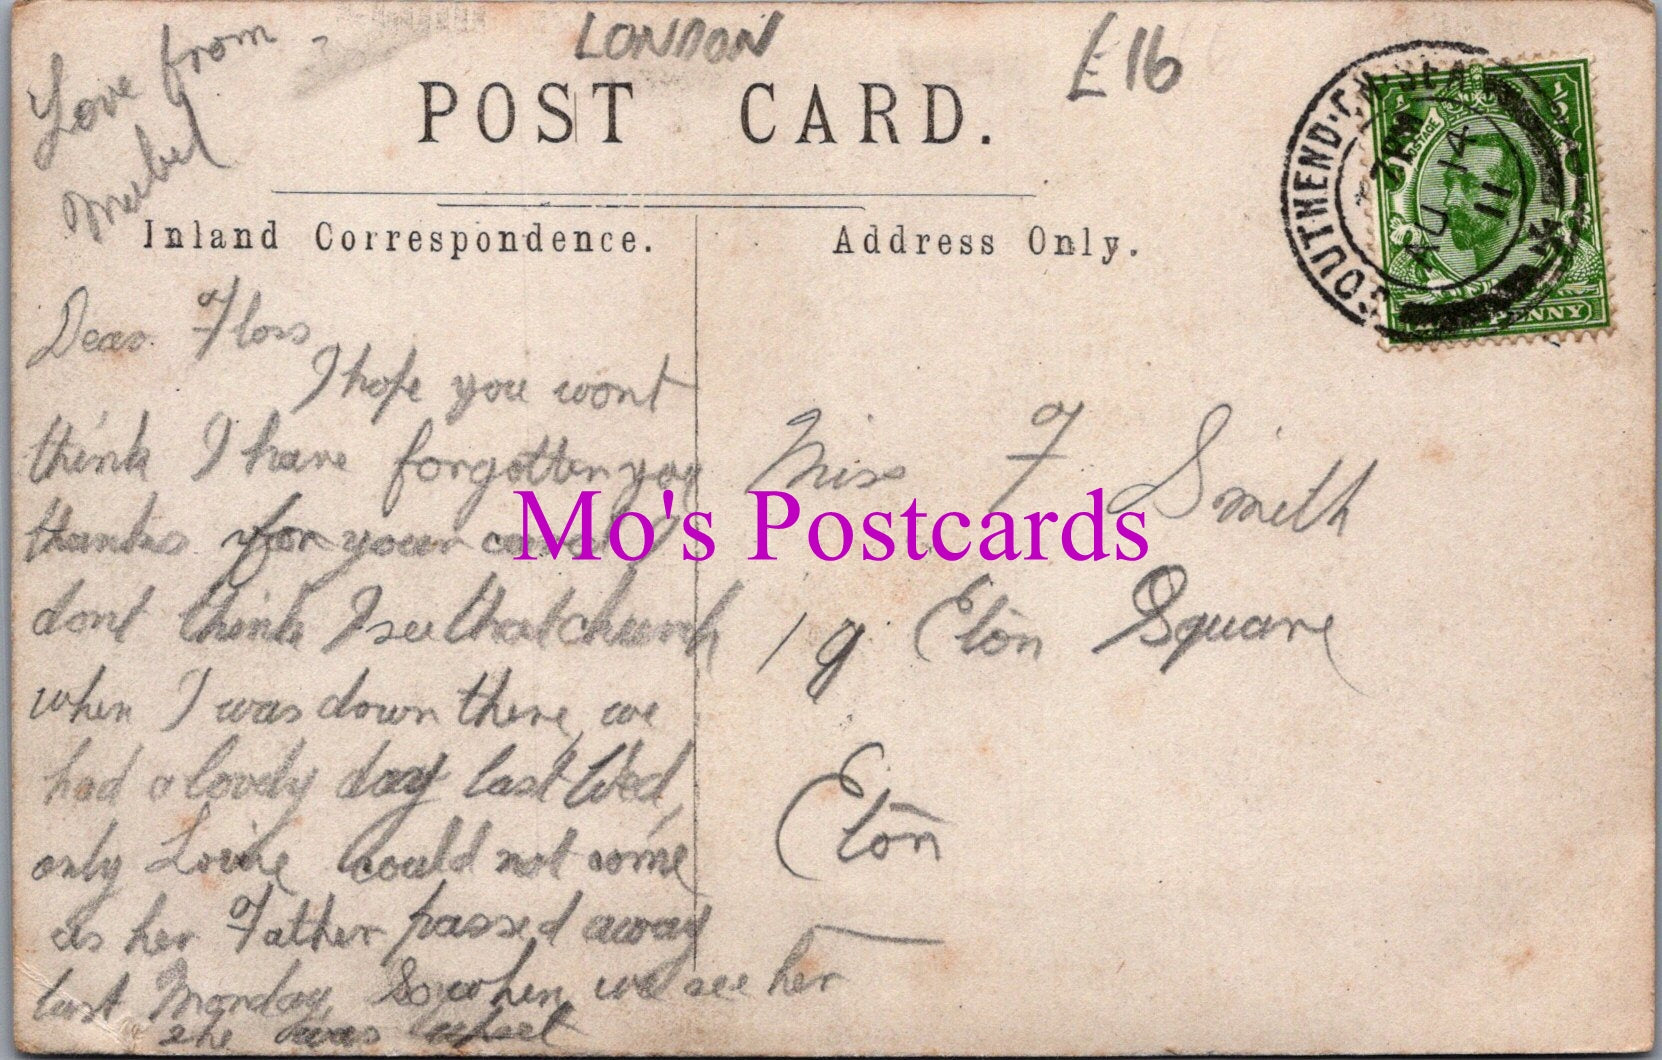 Love from
Mabel
LONDON
£16
POST CARD.
Inland Correspondence.
Address Only.
SOUTHEND-ON-SEA
7 PM
AU 14
11
POSTAGE
PENNY
Dear Floss
I hope you wont
think I have forgotten you
thanks for your card I
dont think I see that church
when I was down there, we
had a lovely day last Wed,
only could not come
as her Father passed away
last Monday So when we see her
she was upset
Mo's Postcards
Miss F Smith
19 Eton Square
Eton